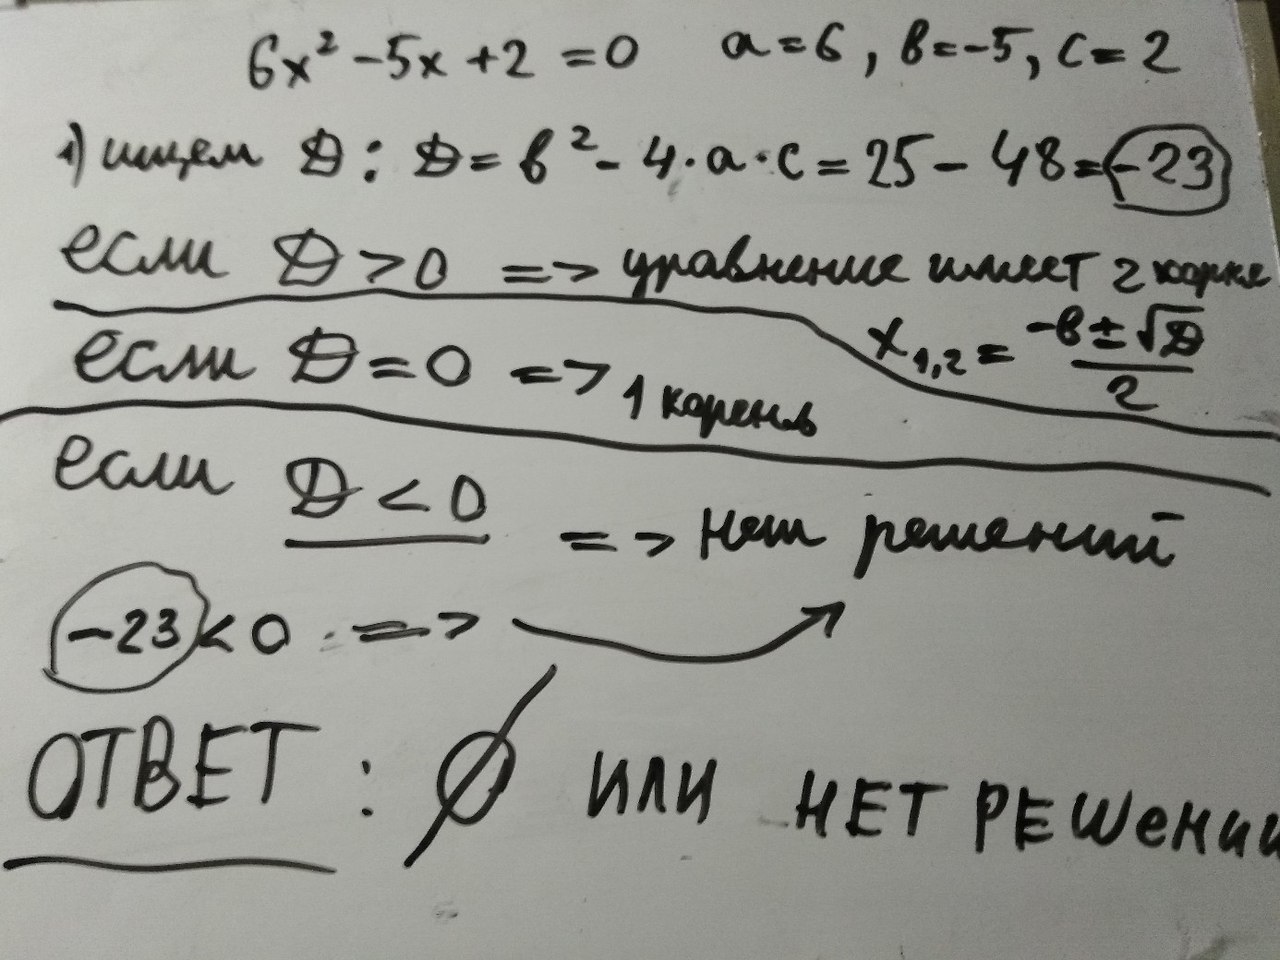 6x² - 5x + 2 = 0 a = 6, в = -5, c = 2
1) ищем D : D = в² - 4 · a · c = 25 - 48 = -23
если D > 0 => уравнение имеет 2 корня
x₁,₂ = (-в ± √D) / 2
если D = 0 => 1 корень
если D < 0 => нет решений
-23 < 0 =>
ОТВЕТ : ∅ ИЛИ НЕТ РЕШЕНИЙ